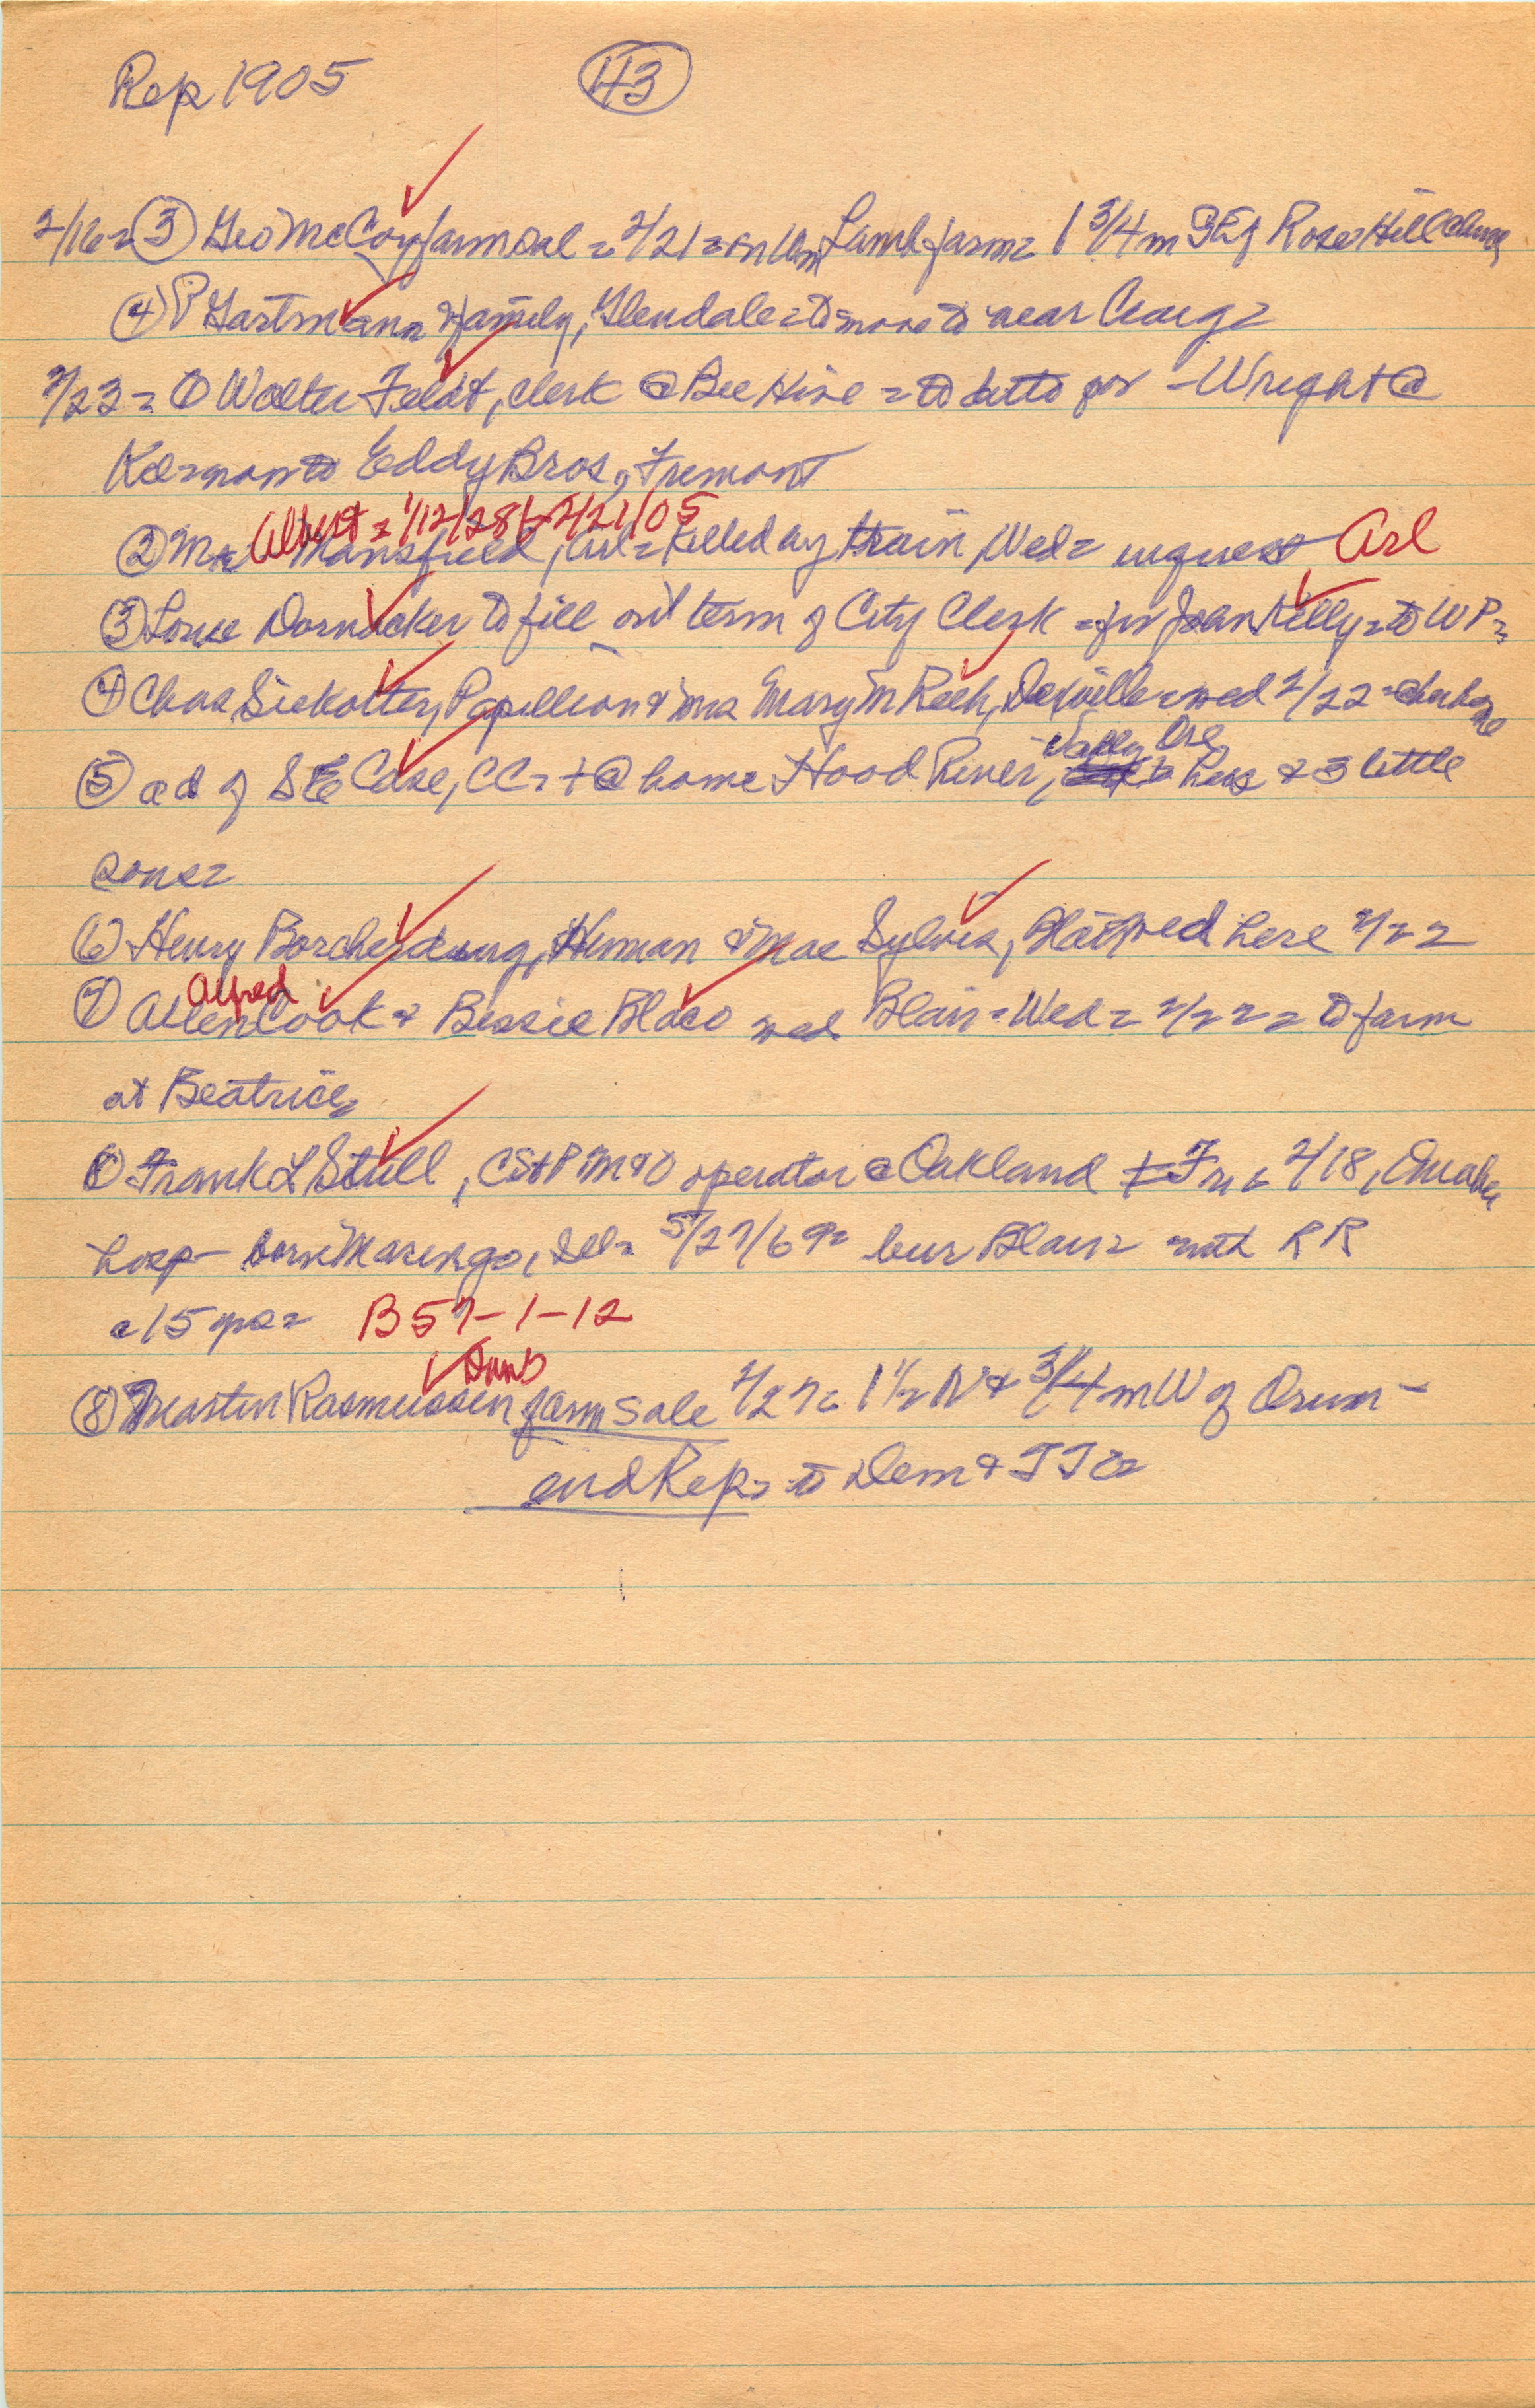 Rep 1905 43
2/16 = 3 Geo McCoy farm sal = 2/21 = on Wm Lamb farm = 1 3/4 m SE of Rose Hill
4 P Gartmann & family, Glendale = to move to near Craig =
2/23 = 1 Walter Feldt, clerk @ Bee Hive = to
to Eddy Bros, Fremont
Albert = 1/12/28 - 2/21/05
2 Mr Mansfield, Arl = killed by train, Wed = inquest Arl
3 Louie Dornacker to fill out term of City Clerk = for Joan Kelly = to WP =
4 Chas Siekotter, Papillion & Miss Mary M Reeh, wed 2/22 =
Valley Ore
5 ad of S E Case, CC = + @ home Hood River, hus & 3 little
sons =
6 Henry Borcherdung, Herman & Mae Sylvis, wed here 2/22
Alfred
7 Allen Cook & Bessie Blaco wed Blair = Wed = 2/22 = to farm
at Beatrice
Frank L Stull, CStPM&O operator @ Oakland + Fri 2/18, Omaha
hosp - born Marengo, Ill = 5/27/69 = bur Blair = with RR
15 yrs = B 57-1-12
Dana
8 Martin Rasmussen farm sale 2/27 = 1 1/2 N & 3/4 m W of Orum -
end Rep = to Dem &